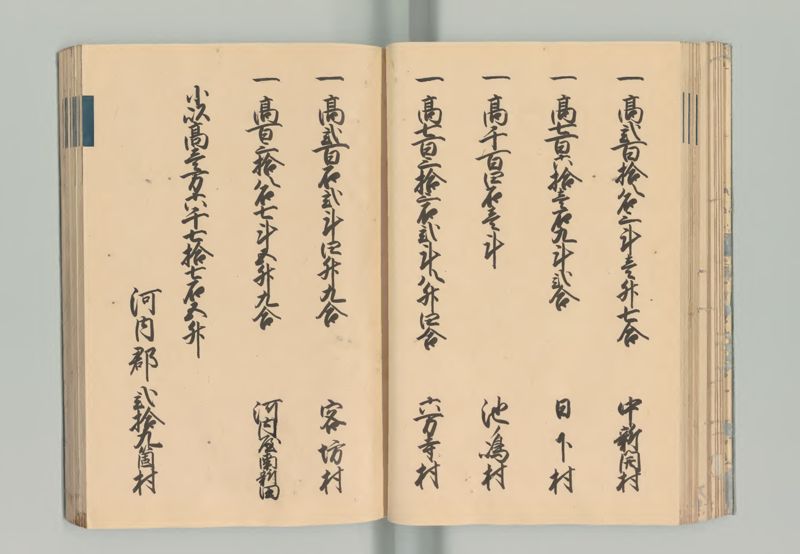 一高弐百拾八石二斗壱升七合 中新開村
一高七百六拾壱石九斗弐合 日下村
一高千百四石壱斗 池ノ嶋村
一高七百三拾三石弐斗八升四合 六万寺村
一高弐百石弐斗四升九合 客坊村
一高百三拾八石七斗五升九合 河内屋南新田
小以高壱万六千七拾七石五升
河内郡 弐拾九箇村